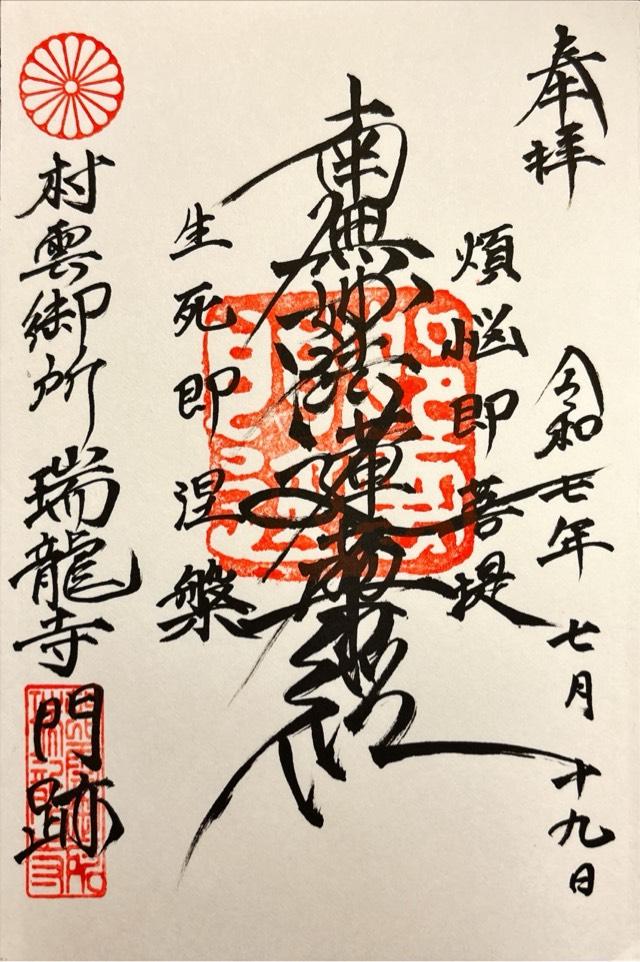 奉拝
令和七年七月十九日
煩悩即菩提
南無妙法蓮華経
生死即涅槃
村雲御所瑞龍寺門跡